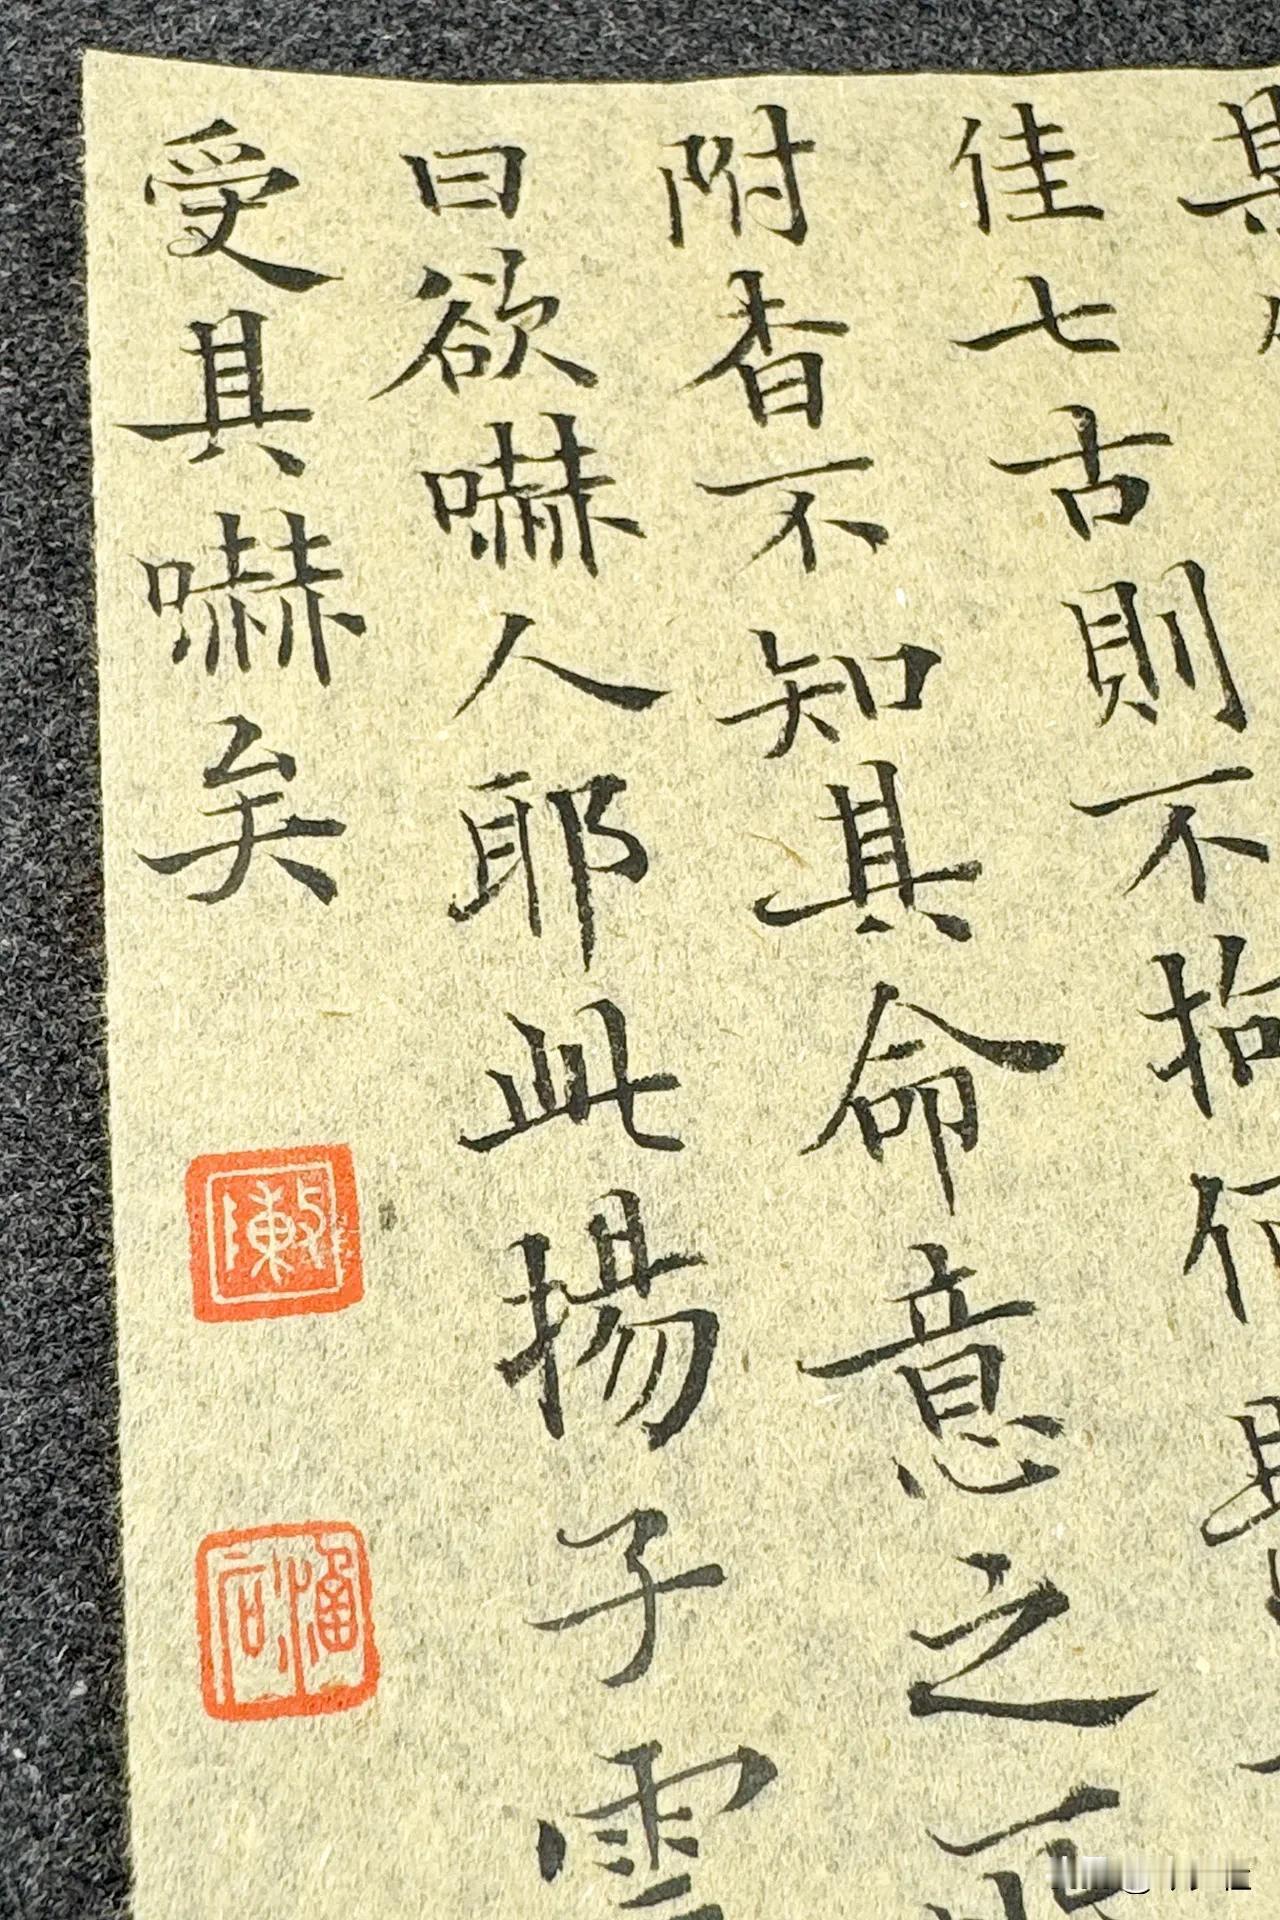 其
佳七古則不拘何
附杳不知其命意之所
曰欲嚇人耶此揚子雲
受其嚇矣
陳